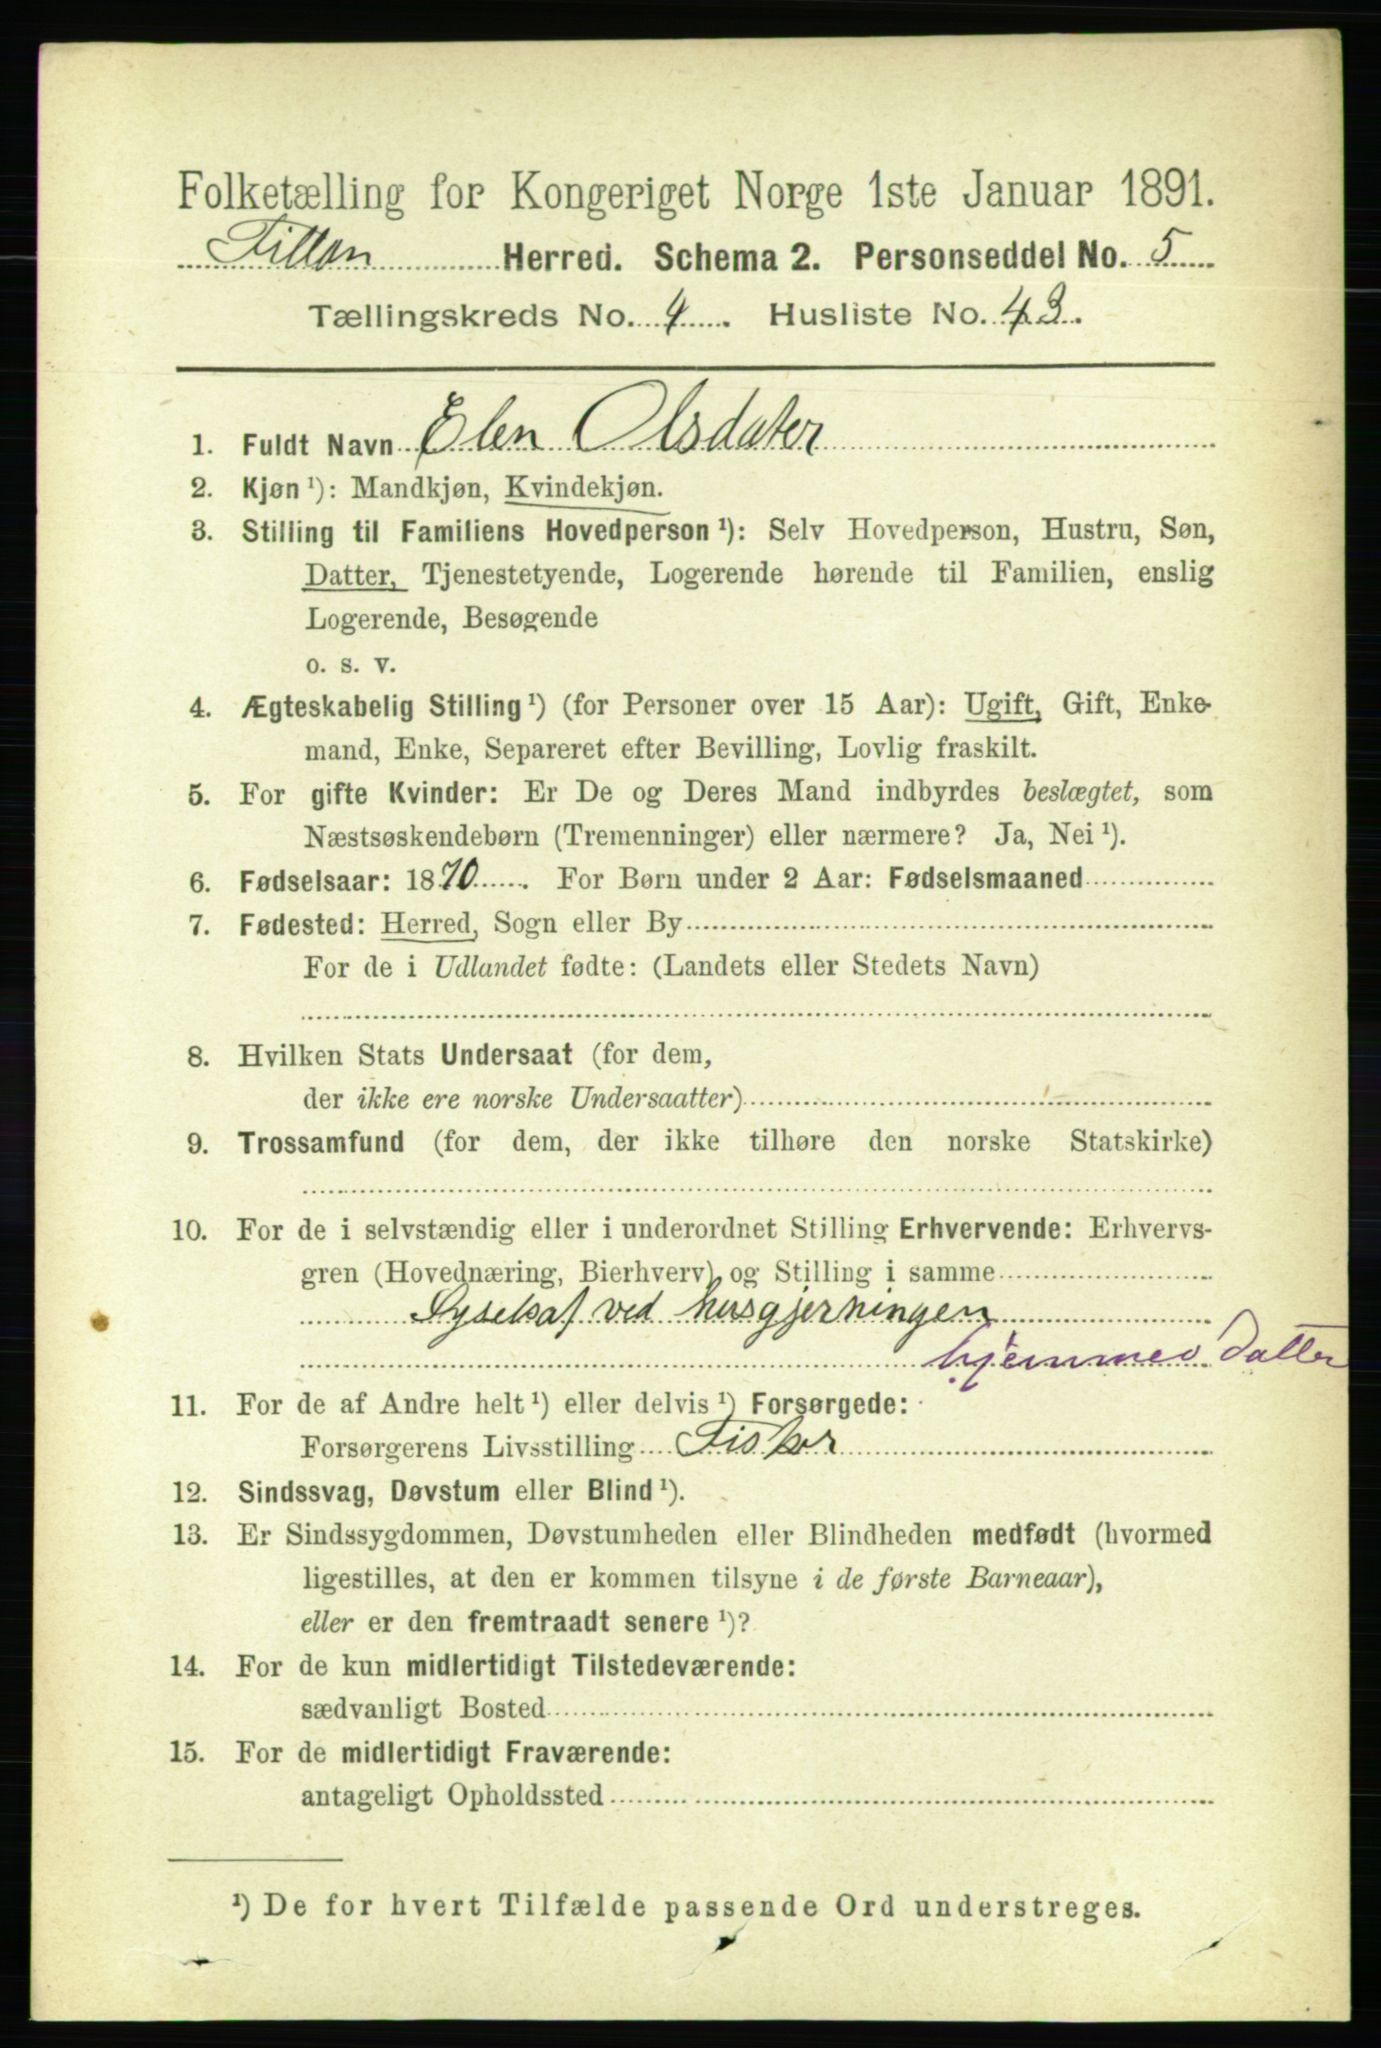 Folketælling for Kongeriget Norge 1ste Januar 1891.
Fillan Herred. Schema 2. Personseddel No. 5
Tællingskreds No. 4. Husliste No. 43.
1. Fuldt Navn Elen Olsdater
2. Kjøn ¹): Mandkjøn, Kvindekjøn.
3. Stilling til Familiens Hovedperson ¹): Selv Hovedperson, Hustru, Søn,
Datter, Tjenestetyende, Logerende hørende til Familien, enslig
Logerende, Besøgende
o. s. v.
4. Ægteskabelig Stilling ¹) (for Personer over 15 Aar): Ugift, Gift, Enke-
mand, Enke, Separeret efter Bevilling, Lovlig fraskilt.
5. For gifte Kvinder: Er De og Deres Mand indbyrdes beslægtet, som
Næstsøskendebørn (Tremenninger) eller nærmere? Ja, Nei ¹).
6. Fødselsaar: 1870. For Børn under 2 Aar: Fødselsmaaned
7. Fødested: Herred, Sogn eller By
For de i Udlandet fødte: (Landets eller Stedets Navn)
8. Hvilken Stats Undersaat (for dem,
der ikke ere norske Undersaatter)
9. Trossamfund (for dem, der ikke tilhøre den norske Statskirke)
10. For de i selvstændig eller i underordnet Stilling Erhvervende: Erhvervs-
gren (Hovednæring, Bierhverv) og Stilling i samme
Syselsat ved husgjerningen
hjemmev Datter
11. For de af Andre helt ¹) eller delvis ¹) Forsørgede:
Forsørgerens Livsstilling Fisker
12. Sindssvag, Døvstum eller Blind ¹).
13. Er Sindssygdommen, Døvstumheden eller Blindheden medfødt (hvormed
ligestilles, at den er kommen tilsyne i de første Barneaar),
eller er den fremtraadt senere ¹)?
14. For de kun midlertidigt Tilstedeværende:
sædvanligt Bosted
15. For de midlertidigt Fraværende:
antageligt Opholdssted
¹) De for hvert Tilfælde passende Ord understreges.